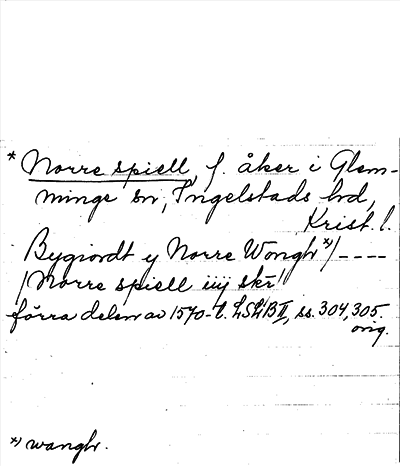 * Norre spiell, f. åker i Glem-
minge sn, Ingelstads hd,
Krist. l.
Bygiordt y Norre Wongh *) ----
/Norre spiell iiij skr/
förra delen av 1570-t. LSLB II, ss. 304, 305.
orig.
*) wangh.